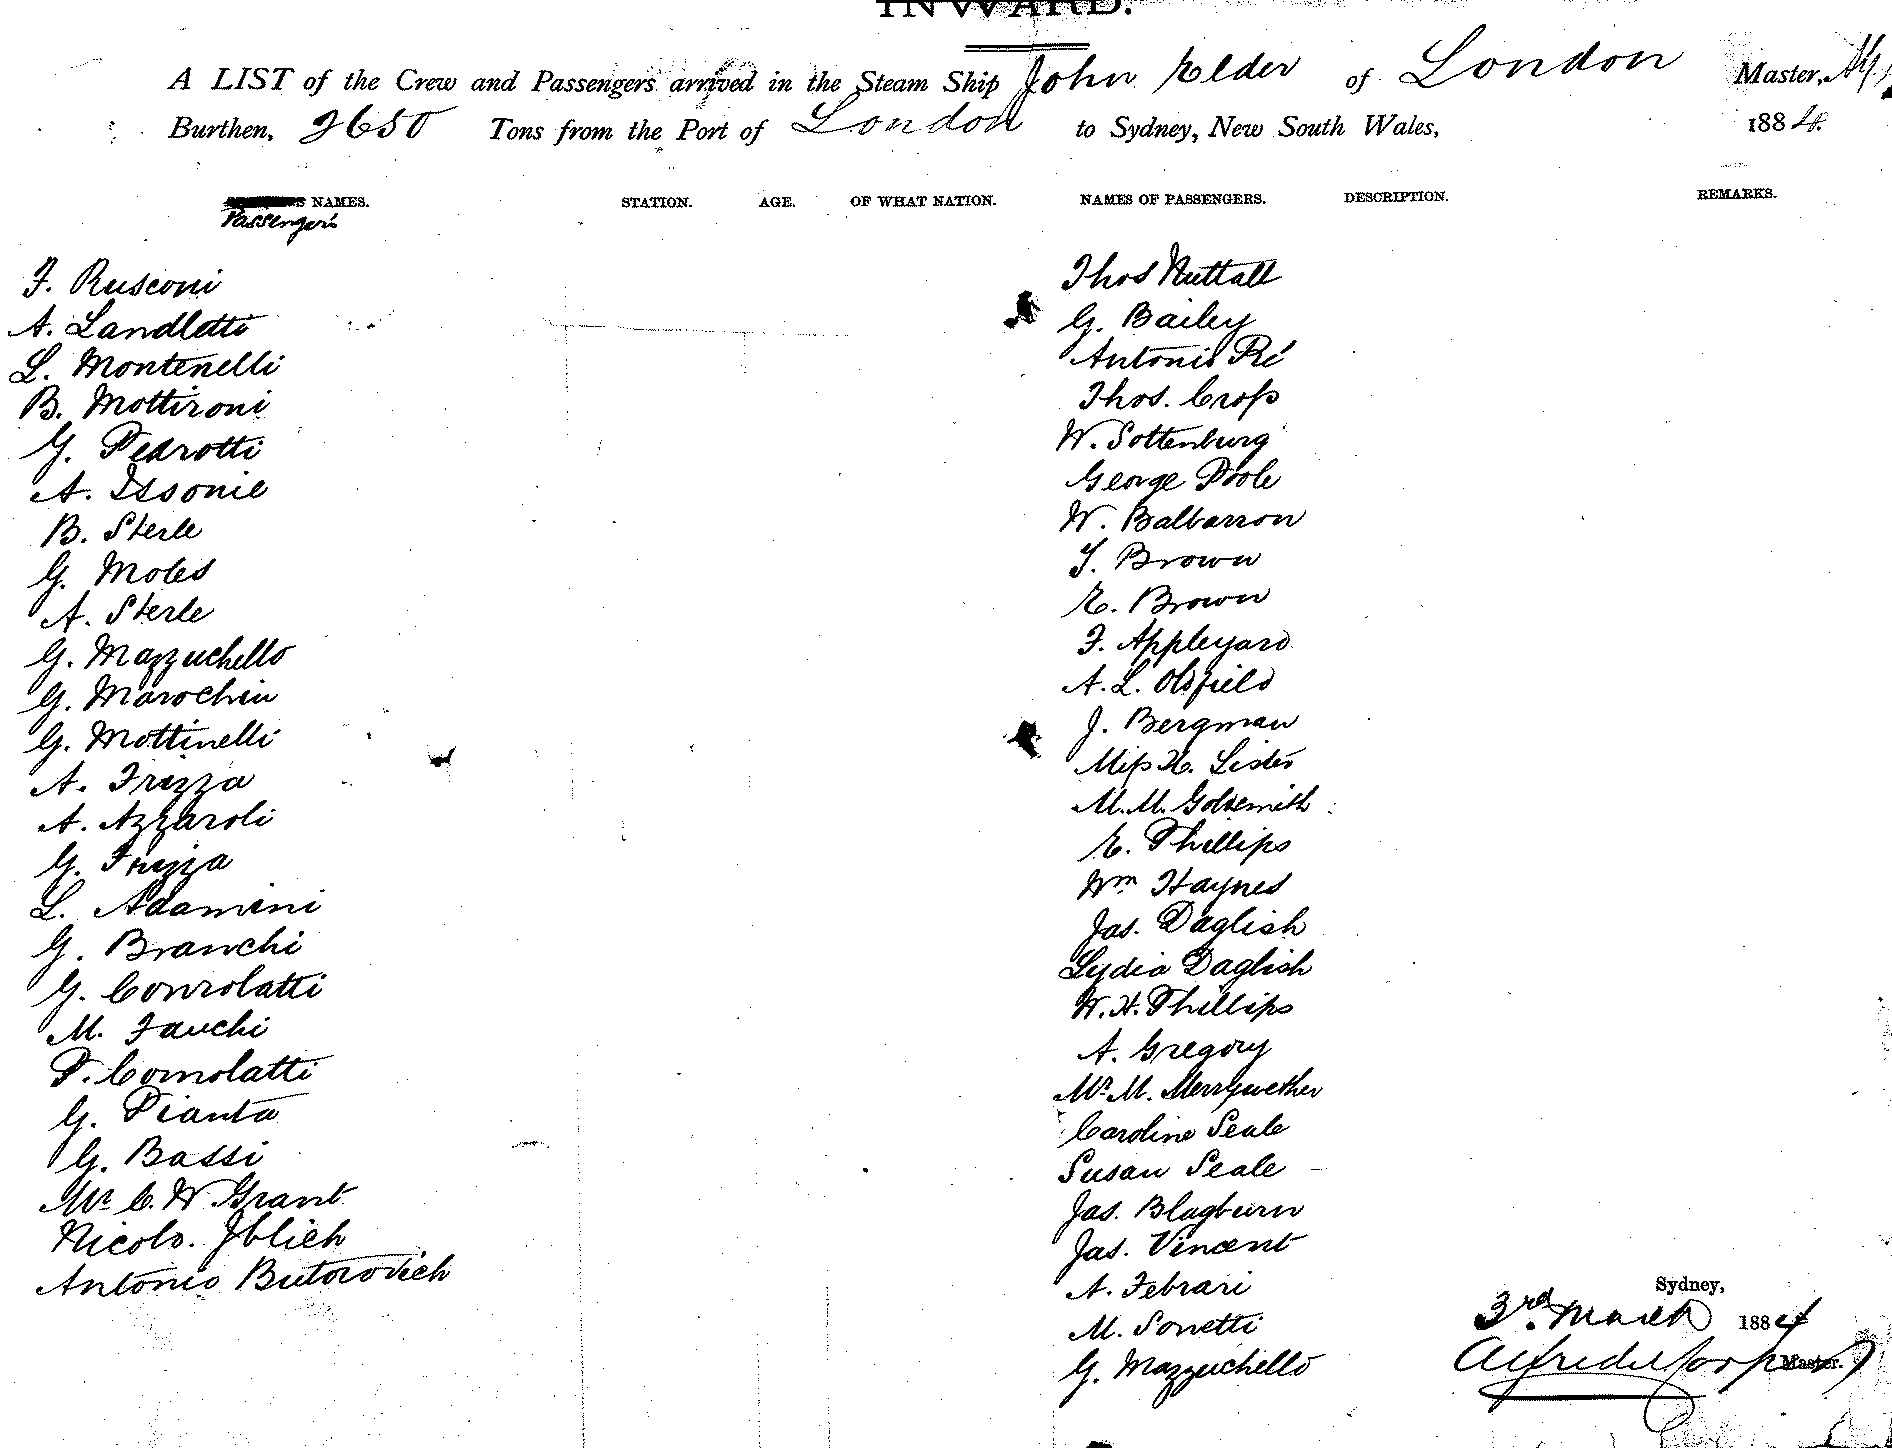 INWARD.
A LIST of the Crew and Passengers arrived in the Steam Ship John Elder of London Master,
Burthen, 2650 Tons from the Port of London to Sydney, New South Wales, 1884.
NAMES. STATION. AGE. OF WHAT NATION. NAMES OF PASSENGERS. DESCRIPTION. REMARKS.
Passengers
F. Rusconi
A. Landletti
L. Montenelli
B. Mottironi
G. Pedrotti
A. Issonie
B. Sterle
G. Moles
A. Sterle
G. Mazzuchello
G. Marochin
G. Mottinelli
A. Frizza
A. Azzaroli
G. Frizza
L. Adamini
G. Branchi
G. Conrolatti
M. Fauchi
P. Comolatti
G. Pianta
G. Bassi
Mr C. W. Grant
Nicolo. Iblich
Antonio Butorovich
Thos Nuttall
G. Bailey
Antonio Ré
Thos. Cross
W. Sottenburg
George Poole
W. Balbarron
T. Brown
E. Brown
F. Appleyard
A. L. Oldfield
J. Bergman
Miss H. Lister
M. M. Goldsmith
E. Phillips
Wm Haynes
Jas. Daglish
Lydia Daglish
W. H. Phillips
A. Gregory
Mr M. Merrywether
Caroline Seale
Susan Seale
Jas. Blagburn
Jas. Vincent
A. Febrari
M. Sonetti
G. Mazzuchello
Sydney,
3rd March 1884
Master.